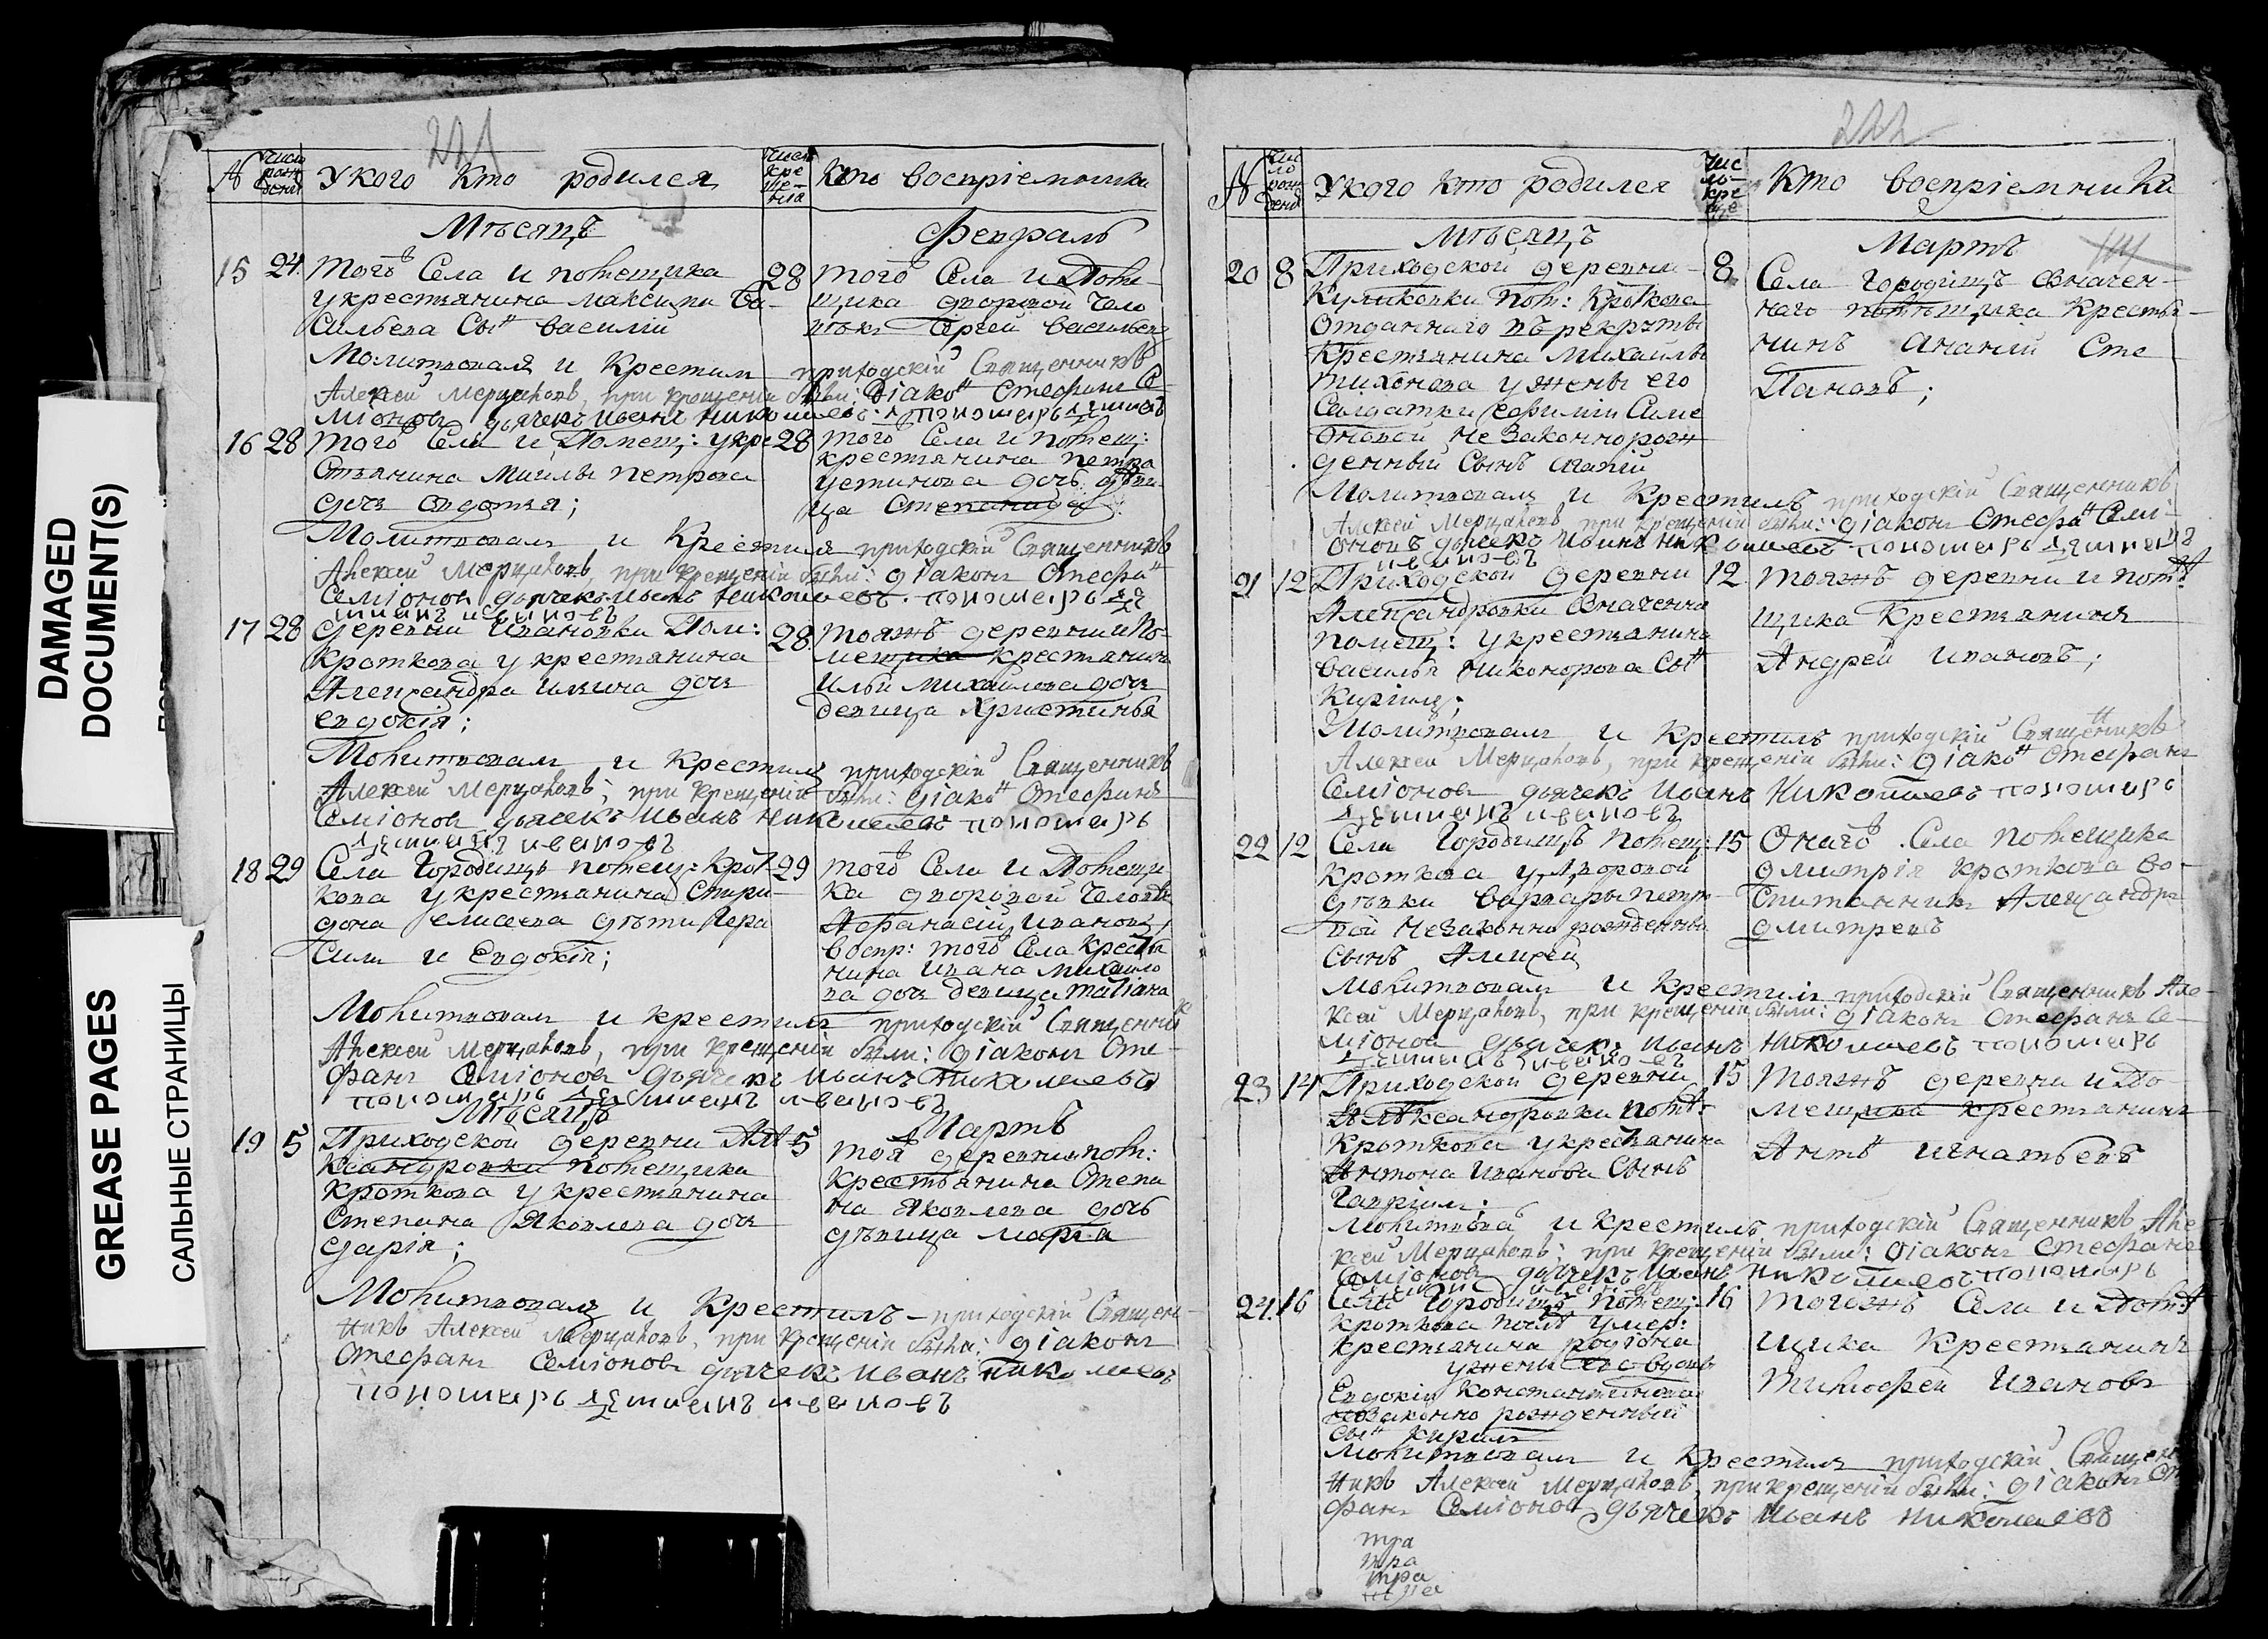 DAMAGED
DOCUMENT(S)
GREASE PAGES
САЛЬНЫЕ СТРАНИЦЫ
221
№
Число рожд
У кого кто родился
Число кре ще ния
Кто воспріемники
Мѣсяцъ
Февраль
15 24
Того Села и помещика
у крестьянина Максима Ва
сильева Сын Василій
28
того Села и Поме
щика дворовой чело
векъ Сергей Васильевъ
Молитвовалъ и Крестил приходскій Священникъ
Алексей Мерцаловъ, при крещеніи были: діаконъ Стефанъ Се
міоновъ дьячекъ Иванъ Николаевъ пономарь
16 28
того Села и Помещ: у кре
стьянина Михайлы Петрова
дочь Евдотья;
28
того Села и помещ:
крестьянина Петра
Устинова дочь деви
ца Степанида
Молитвовалъ и Крестил приходскій Священникъ
Алексей Мерцаловъ, при крещеніи были: діаконъ Стефан
Семіоновъ дьячекъ Иванъ Николаевъ пономарь
17 28
деревни Ивановки Пом:
Кроткова у крестьянина
Александра Ильина дочь
евдокія;
28
тояжъ деревни и По
мещика крестьянина
Ильи Михайлова дочь
девица Христинья
Молитвовалъ и Крестилъ приходскій Священникъ
Алексей Мерцаловъ, при крещеніи были: діаконъ Стефанъ
Семіоновъ дьячекъ Иванъ Николаевъ пономарь
18 29
Села Городищъ помещ: Крот
кова у крестьянина Спири
дона елисеева дѣти Гера
сим и Евдокія;
29
того Села и Помещи
ка дворовой человек
Афанасій Ивановъ,
воспр: того Села крестья
нина Ивана Михайло
ва дочь девица Татіана
Молитвовалъ и крестилъ приходскій Священник
Алексей Мерцаловъ, при крещеніи были: діаконъ Сте
фанъ Семіоновъ дьячекъ Иванъ Николаевъ
пономарь
Мѣсяцъ
Мартъ
19 5
Приходской деревни Але
ксандровки помещика
Кроткова у крестьянина
Степана Яковлева дочь
Дарія;
5
тоя деревни и пом:
Крестьянина Степа
на Яковлева дочь
дѣвица Марѳа
Молитвовалъ и Крестилъ приходскій Священ
никъ Алексей Мерцаловъ, при крещеніи были: діаконъ
Стефанъ Семіоновъ дьячекъ Иванъ Николаевъ
пономарь
222
№
Чис ло рож дени
У кого кто родился
Чис ло кре ще
Кто воспріемники
Мѣсяцъ
Мартъ
20 8
Приходской деревни
Куликовки Пом: Кроткова
отданнаго въ рекруты
Крестьянина Михайлы
Тихонова у жены его
Салдатки ефиміи Симе
оновой незаконнорож
денный Сынъ Агапій
8
Села Городищъ Означен
наго помѣщика Крестья
нинъ Ананій Сте
пановъ;
Молитвовалъ и Крестилъ приходскій Священникъ
Алексей Мерцаловъ при крещеніи были: діаконъ Стефан Семі
оновъ дьячекъ Иванъ Николаевъ пономарь
21 12
Приходской деревни
Александровки Означенна
помещ: у крестьянина
Василья Никонорова Сын
Кирилъ;
12
тояжъ деревни и поме
щика Крестьянинъ
Андрей Ивановъ;
Молитвовалъ и Крестилъ приходскій Священникъ
Алексей Мерцаловъ, при крещеніи были: діакон Стефанъ
Семіоновъ дьячекъ Иванъ Николаевъ пономарь
22 12
Села Городищъ помещ:
Кроткова у дворовой
дѣвки Варвары Петро
вой незаконно рожденны
Сынъ Алексей
15
Онаго Села помещика
Дмитрія Кроткова во
спитанникъ Александръ
Дмитревъ
Молитвовалъ и Крестилъ приходскій Священникъ Але
ксей Мерцаловъ, при крещеніи были: діаконъ Стефанъ Се
міоновъ дьячекъ Иванъ Николаевъ пономарь
23 14
Приходской деревни
Александровки пом:
Кроткова у крестьянина
Антона Иванова Сынъ
Гавріилъ;
15
Тояжъ деревни и По
мещика крестьянинъ
Антон Игнатьевъ
Молитвова и Крестилъ приходскій Священникъ Але
ксей Мерцаловъ: при крещеніи были: діаконъ Стефанъ
Семіоновъ дьячекъ Иванъ Николаевъ пономарь
24 16
Села Городищъ Помещ:
Кроткова после умер:
крестьянина Родіона
у жены его вдовы
Евдокіи Константиновой
незаконно рожденный
Сын Кирилъ
16
Тогожъ Села и Поме
щика Крестьянинъ
Тимофей Ивановъ
Молитвовалъ и Крестилъ приходскій Священ
никъ Алексей Мерцаловъ, при крещеніи были: діаконъ Сте
фанъ Семіоновъ дьячекъ Иванъ Николаевъ
тра
тра
тра